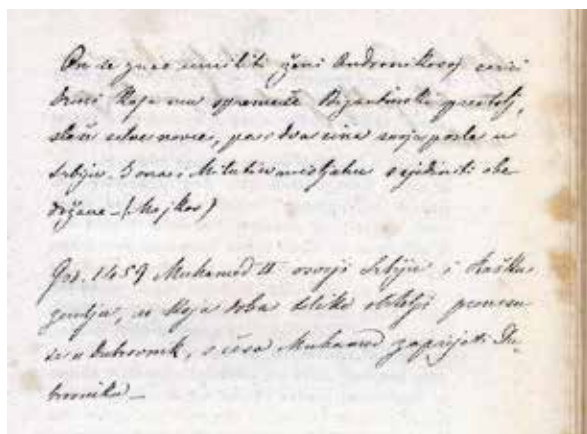 On se znao umiliti ženi Andronikovoj carici
Irini koja mu spremaše Bizantinski prestolj,
slaše mu novce, pa i dva sina svoja posla u
Srbiju. Ona i Milutin mišljahu sjediniti obe
države _ (Majkov)
God. 1459 Muhamed II osvoji Srbiju i Rašku
zemlju, u koja doba toliko obitelji prenesu
se u Dubrovnik, s česa Muhamed zaprijeti Du-
brovniku _